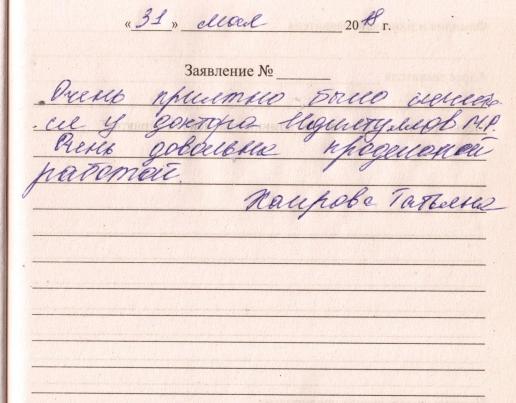 « 31 » мая 2018 г.
Заявление №
Очень приятно было лечить
ся у доктора М.Р.
Очень довольна проделаной
работой.
Хаирова Татьяна